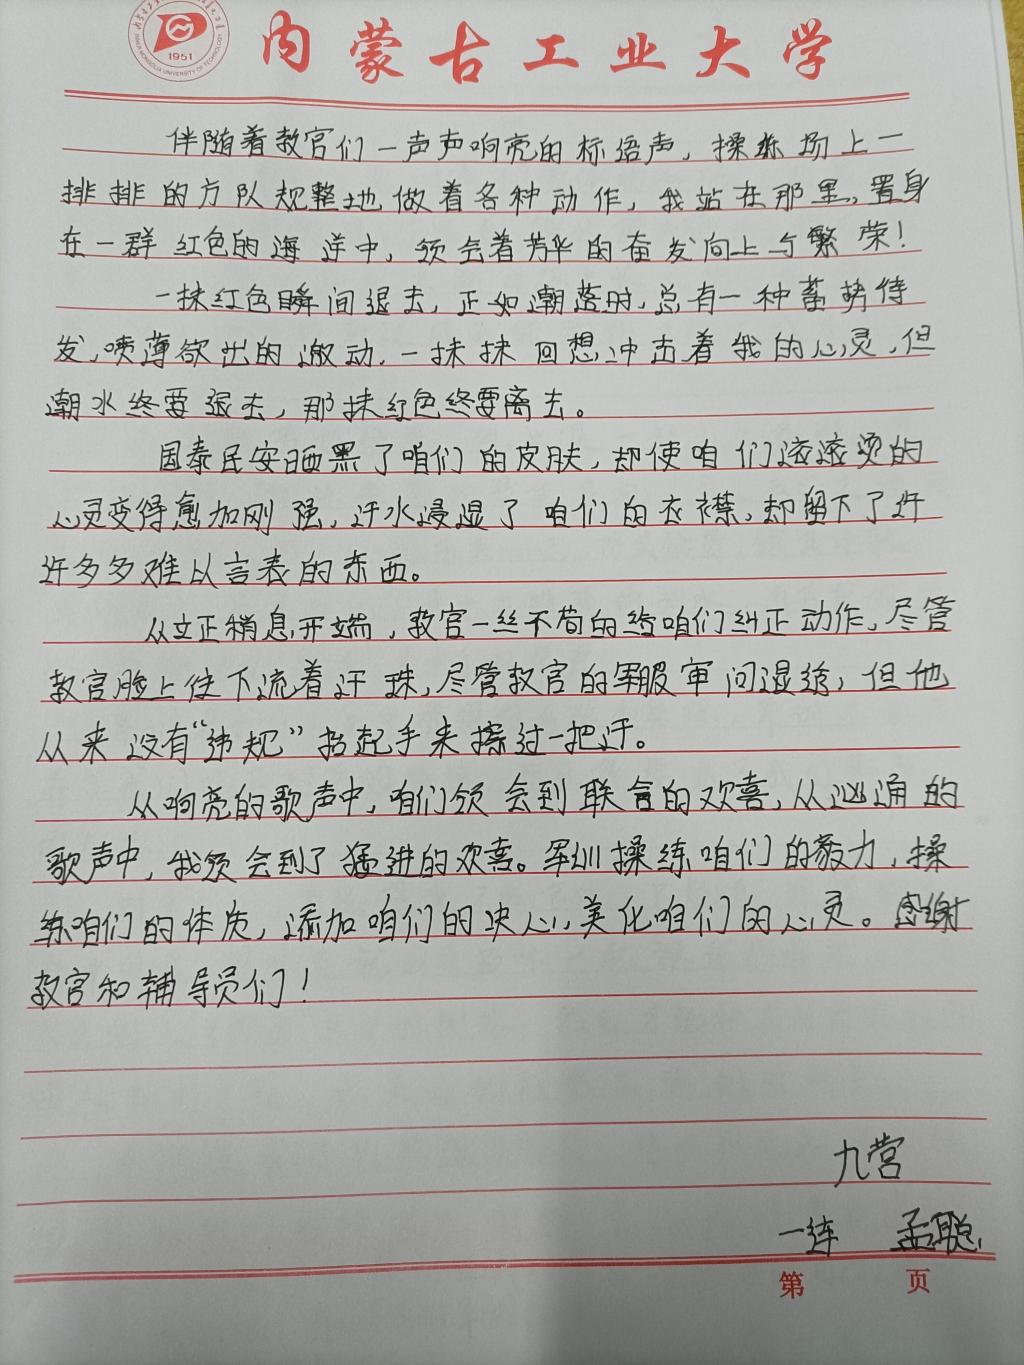 1951
INNER MONGOLIA UNIVERSITY OF TECHNOLOGY
内蒙古工业大学
伴随着教官们一声声响亮的标语声，操练场上一
排排的方队规整地做着各种动作，我站在那里，置身
在一群红色的海洋中，领会着芳华的奋发向上与繁荣！
一抹红色瞬间退去，正如潮落时，总有一种蓄势待
发，喷薄欲出的激动，一抹抹回想冲击着我的心灵，但
潮水终要退去，那抹红色终要离去。
国泰民安晒黑了咱们的皮肤，却使咱们滚滚烫的
心灵变得愈加刚强，汗水浸湿了咱们的衣襟，却留下了许
许多多难以言表的东西。
从立正稍息开端，教官一丝不苟的给咱们纠正动作，尽管
教官脸上往下流着汗珠，尽管教官的军服审间湿透，但他
从来没有“违规”抬起手来擦过一把汗。
从响亮的歌声中，咱们领会到联合的欢喜，从汹涌的
歌声中，我领会到了猛进的欢喜。军训操练咱们的毅力，操
练咱们的体质，添加咱们的决心，美化咱们的心灵。感谢
教官和辅导员们！
九营
一连 孟聪
第 页